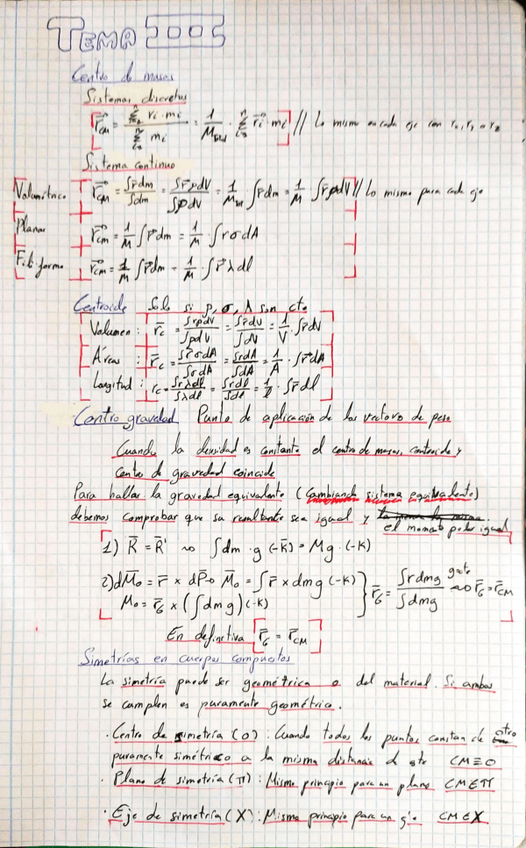 TEMA III
Centro de masas
Sistemas discretos
r⃗cm = Σ ri·mi / Σ mi = 1/M · Σ r⃗i mi // Lo mismo en cada eje con
Sistema continuo
Volumétrico r⃗CM = ∫r̄dm / ∫dm = ∫r̄ρdV / ∫ρdV = 1/M ∫r̄dm = 1/M ∫r̄ρdV // Lo mismo para cada eje
Planar r⃗cm = 1/M ∫r̄dm = 1/M ∫rσdA
Filiforme r⃗cm = 1/M ∫r̄dm = 1/M ∫r̄λdl
Centroide Solo si ρ, σ, λ son cte
Volumen: r̄c = ∫r̄ρdV / ∫ρdV = ∫r̄dV / ∫dV = 1/V · ∫r̄dV
Áreas: r̄c = ∫r̄σdA / ∫σdA = ∫r̄dA / ∫dA = 1/A · ∫r̄dA
Longitud: rc = ∫r̄λdl / ∫λdl = ∫r̄dl / ∫dl = 1/l · ∫r̄dl
Centro gravedad Punto de aplicación de los vectores de peso
Cuando la densidad es constante el centro de masas, centroide y
centro de gravedad coincide
Para hallar la gravedad equivalente (cambiando sistema equivalente)
debemos comprobar que su resultante sea igual y
el momento polar igual
1) R̄ = R̄' ∫dm·g(-k̄) = Mg·(-k)
2) dM̄o = r̄ × dP̄ M̄o = ∫r̄ × dmg(-k)
Mo = r̄G × (∫dmg)(-k)
r̄G = ∫rdmg / ∫dmg g=cte r̄G = r̄CM
En definitiva r̄G = r̄CM
Simetrías en cuerpos compuestos
La simetría puede ser geométrica o del material. Si ambas
se cumplen es puramente geométrica.
· Centro de simetría (O): Cuando todos los puntos constan de otro
puramente simétrico a la misma distancia de este CM≡O
· Plano de simetría (π): Mismo principio para un plano CM∈π
· Eje de simetría (X): Mismo principio para un eje CM∈X